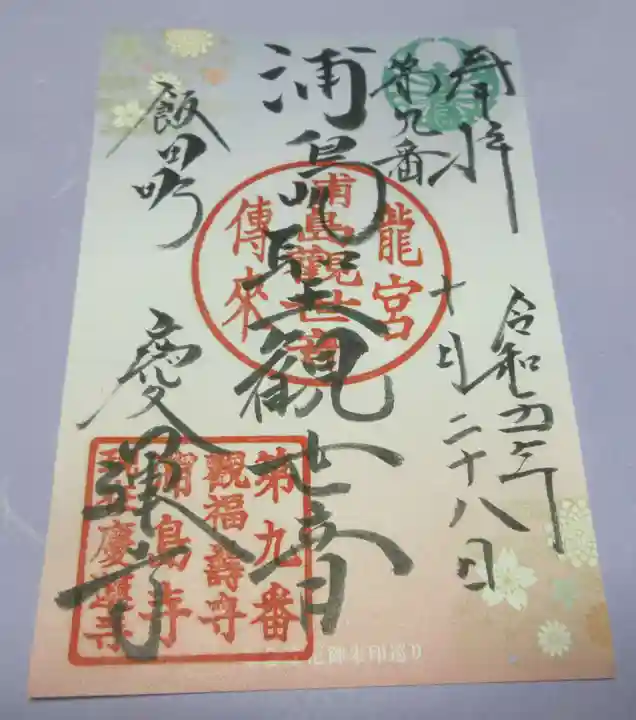 奉拝
令和五年
十月二十八日
第九番
浦島聖観世音
飯田町
慶運寺
龍宮
浦島観世音
傳來
第九番
觀福壽寺
浦島寺
慶運寺
御朱印巡り